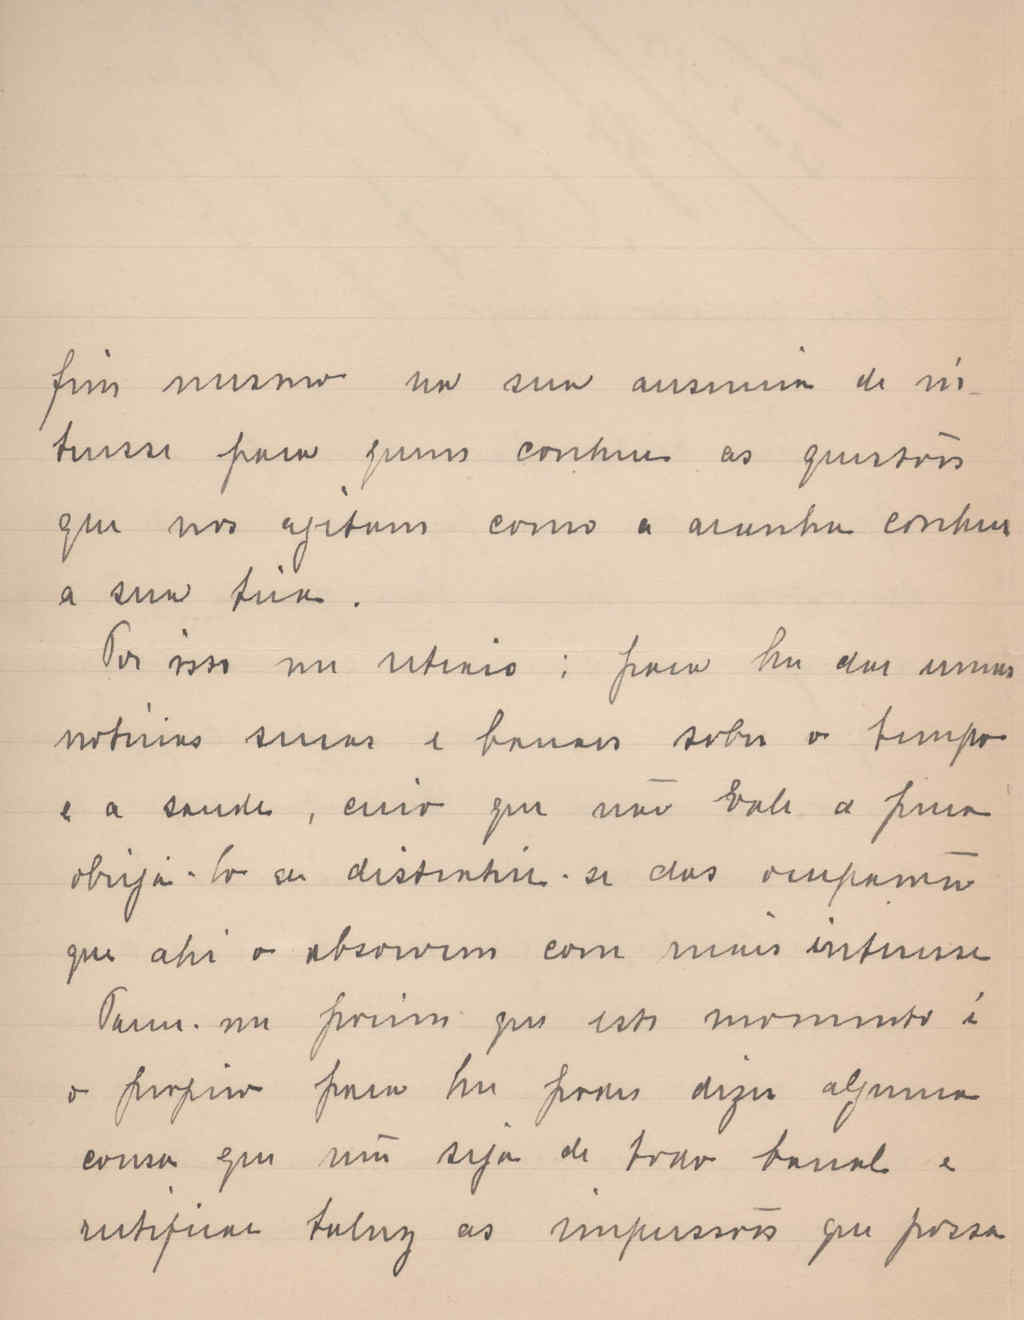 fim mesmo na sua ausencia de in-
teresse para quem conhece as questões
que nos agitam como a aranha conhece
a sua teia.
Por isso me retraio; para lhe dar umas
noticias seccas e banaes sobre o tempo
e a saude, creio que não vale a pena
obrigá-lo a distrahir-se das
que ahi o absorvem com mais interesse
Parece-me porem que este momento é
o proprio para lhe poder dizer alguma
cousa que não seja de todo banal e
rectificar talvez as impressões que possa